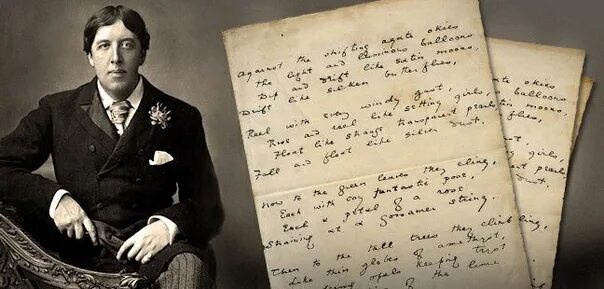 Against the shifting agate skies
The light and luminous balloons
Dip and drift like satin moons,
Drift like silken butterflies,
Reel with every windy gust,
Rise and reel like girls,
Float like strange transparent pearls
Fall and float like silver dust.
Now to the green leaves they cling,
Each with coy fantastic pose,
Each a petal of a rose
Straining at a gossamer string.
Then to the tall trees they climb,
Like thin globes of amethyst,
opals keeping tryst
of the lime
agate skies
balloons
moons,
flies,
girls,
pearls
dust.